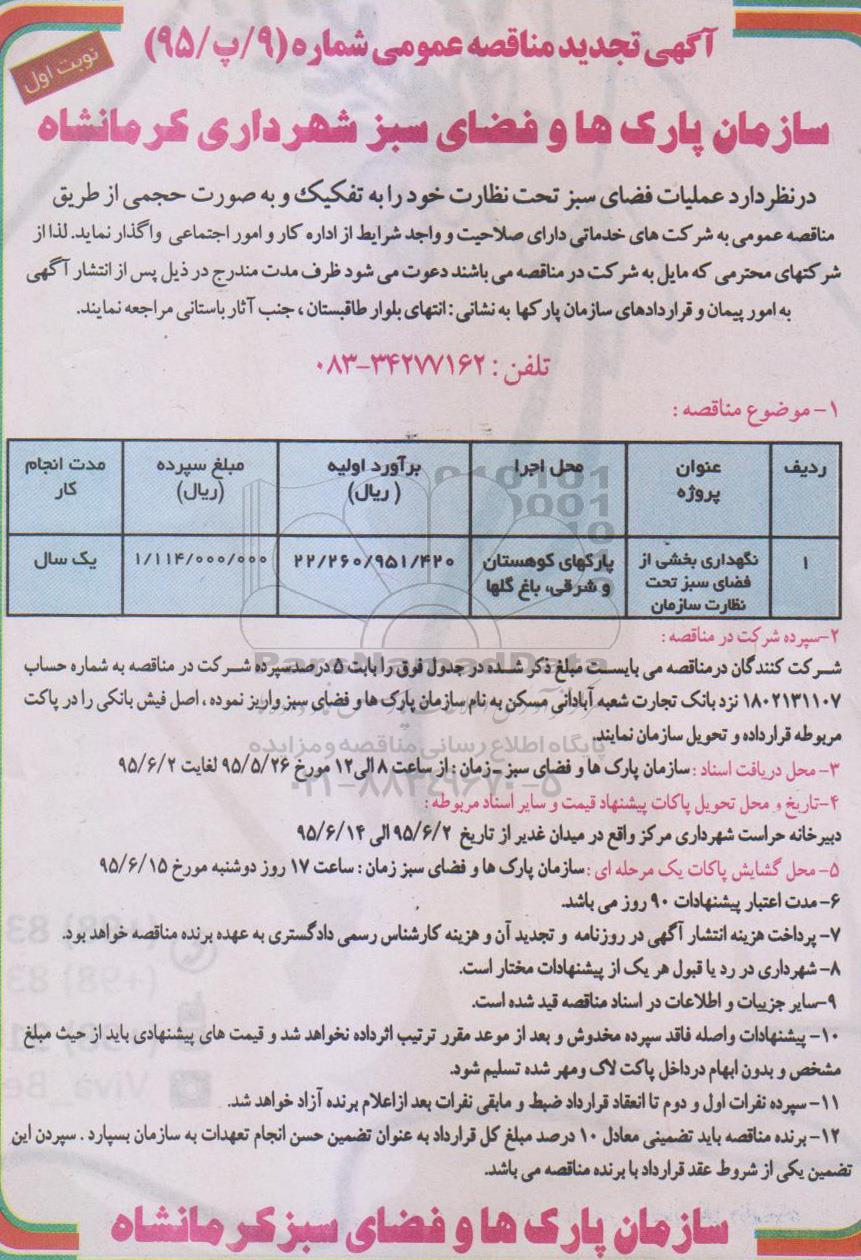 آگهی تجدید مناقصه عمومی شماره (۹/پ/۹۵)
نوبت اول
سازمان پارک ها و فضای سبز شهرداری کرمانشاه
درنظر دارد عملیات فضای سبز تحت نظارت خود را به تفکیک و به صورت حجمی از طریق
مناقصه عمومی به شرکت های خدماتی دارای صلاحیت و واجد شرایط از اداره کار و امور اجتماعی واگذار نماید. لذا از
شرکتهای محترمی که مایل به شرکت در مناقصه می باشند دعوت می شود ظرف مدت مندرج در ذیل پس از انتشار آگهی
به امور پیمان و قراردادهای سازمان پارکها به نشانی : انتهای بلوار طاقبستان ، جنب آثار باستانی مراجعه نمایند.
تلفن : ۳۴۲۷۷۱۶۲-۰۸۳
۱- موضوع مناقصه :
ردیف
عنوان
پروژه
محل اجرا
برآورد اولیه
( ریال)
مبلغ سپرده
(ریال)
مدت انجام
کار
۱
نگهداری بخشی از
فضای سبز تحت
نظارت سازمان
پارکهای کوهستان
و شرقی، باغ گلها
۲۲/۲۶۰/۹۵۱/۴۲۰
۱/۱۱۴/۰۰۰/۰۰۰
یک سال
۲-سپرده شرکت در مناقصه :
شرکت کنندگان درمناقصه می بایست مبلغ ذکر شده در جدول فوق را بابت ۵ درصدسپرده شرکت در مناقصه به شماره حساب
۱۸۰۲۱۳۱۱۰۷ نزد بانک تجارت شعبه آبادانی مسکن به نام سازمان پارک ها و فضای سبز واریز نموده ، اصل فیش بانکی را در پاکت
مربوطه قرارداده و تحویل سازمان نمایند.
پایگاه اطلاع رسانی مناقصه و مزایده
ParsNamadData
۰۲۱-۸۸۳۴۹۶۷۰-۵
۳- محل دریافت اسناد : سازمان پارک ها و فضای سبز -زمان : از ساعت ۸ الی۱۲ مورخ ۹۵/۵/۲۶ لغایت ۹۵/۶/۲
۴-تاریخ و محل تحویل پاکات پیشنهاد قیمت و سایر اسناد مربوطه :
دبیرخانه حراست شهرداری مرکز واقع در میدان غدیر از تاریخ ۹۵/۶/۲ الی ۹۵/۶/۱۴
۵- محل گشایش پاکات یک مرحله ای : سازمان پارک ها و فضای سبز زمان : ساعت ۱۷ روز دوشنبه مورخ ۹۵/۶/۱۵
۶-مدت اعتبار پیشنهادات ۹۰ روز می باشد.
۷- پرداخت هزینه انتشار آگهی در روزنامه و تجدید آن و هزینه کارشناس رسمی دادگستری به عهده برنده مناقصه خواهد بود.
۸- شهرداری در رد یا قبول هر یک از پیشنهادات مختار است.
۹-سایر جزییات و اطلاعات در اسناد مناقصه قید شده است.
۱۰- پیشنهادات واصله فاقد سپرده مخدوش و بعد از موعد مقرر ترتیب اثرداده نخواهد شد و قیمت های پیشنهادی باید از حیث مبلغ
مشخص و بدون ابهام درداخل پاکت لاک ومهر شده تسلیم شود.
۱۱- سپرده نفرات اول و دوم تا انعقاد قرارداد ضبط و مابقی نفرات بعد ازاعلام برنده آزاد خواهد شد.
۱۲- برنده مناقصه باید تضمینی معادل ۱۰ درصد مبلغ کل قرارداد به عنوان تضمین حسن انجام تعهدات به سازمان بسپارد . سپردن این
تضمین یکی از شروط عقد قرارداد با برنده مناقصه می باشد.
سازمان پارک ها و فضای سبز کرمانشاه